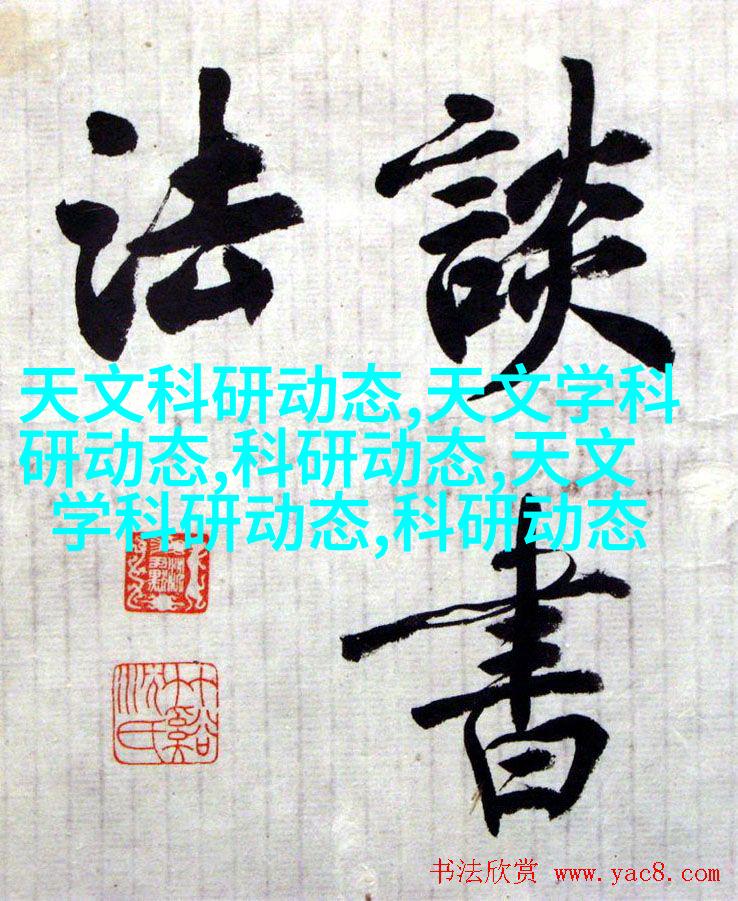 談書
法
天文科研动态,天文学科
研动态,科研动态,天文
学科研动态,科研动态
书法欣赏 www.yac8.com